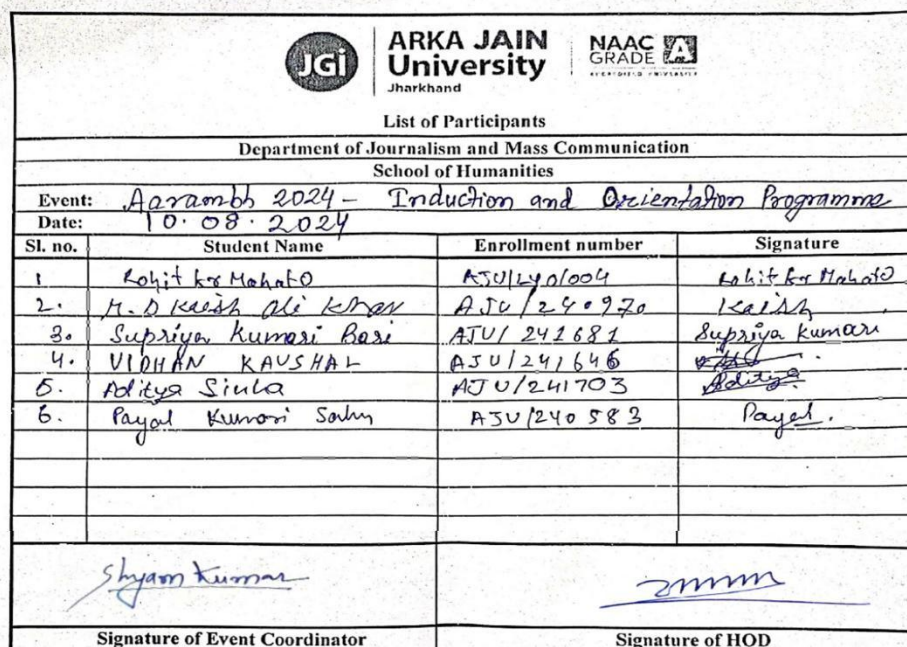 JGi
ARKA JAIN
University
Jharkhand
NAAC
GRADE A
ACCREDITED UNIVERSITY
List of Participants
Department of Journalism and Mass Communication
School of Humanities
Event: Aarambh 2024 - Induction and Orientation Programme
Date: 10.08.2024
Sl. no. Student Name Enrollment number Signature
1 Rohit kr Mahato Rohit kr Mahato
2. M.D Kaish Ali Khan AJU/240970 Kaish
3. Supriya Kumari AJU/241681 Supriya Kumari
4. VIDHAN KAUSHAL AJU/241646
5. Aditya Sinha AJU/241703 Aditya
6. Payal Kumari Sahu AJU/240583 Payal.
Shyam Kumar
Signature of Event Coordinator Signature of HOD